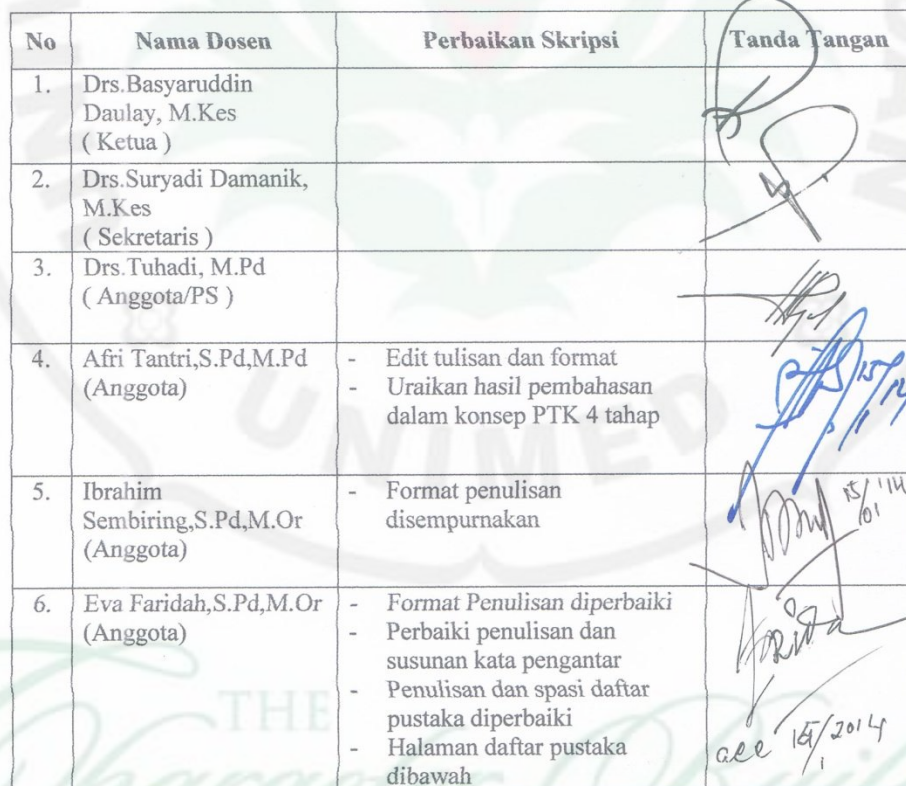 No Nama Dosen Perbaikan Skripsi Tanda Tangan
1. Drs.Basyaruddin
Daulay, M.Kes
( Ketua )
2. Drs.Suryadi Damanik,
M.Kes
( Sekretaris )
3. Drs.Tuhadi, M.Pd
( Anggota/PS )
4. Afri Tantri,S.Pd,M.Pd
(Anggota)
- Edit tulisan dan format
- Uraikan hasil pembahasan
dalam konsep PTK 4 tahap
5. Ibrahim
Sembiring,S.Pd,M.Or
(Anggota)
- Format penulisan
disempurnakan
15/01 '14
6. Eva Faridah,S.Pd,M.Or
(Anggota)
- Format Penulisan diperbaiki
- Perbaiki penulisan dan
susunan kata pengantar
- Penulisan dan spasi daftar
pustaka diperbaiki
- Halaman daftar pustaka
dibawah
UNIMED
THE